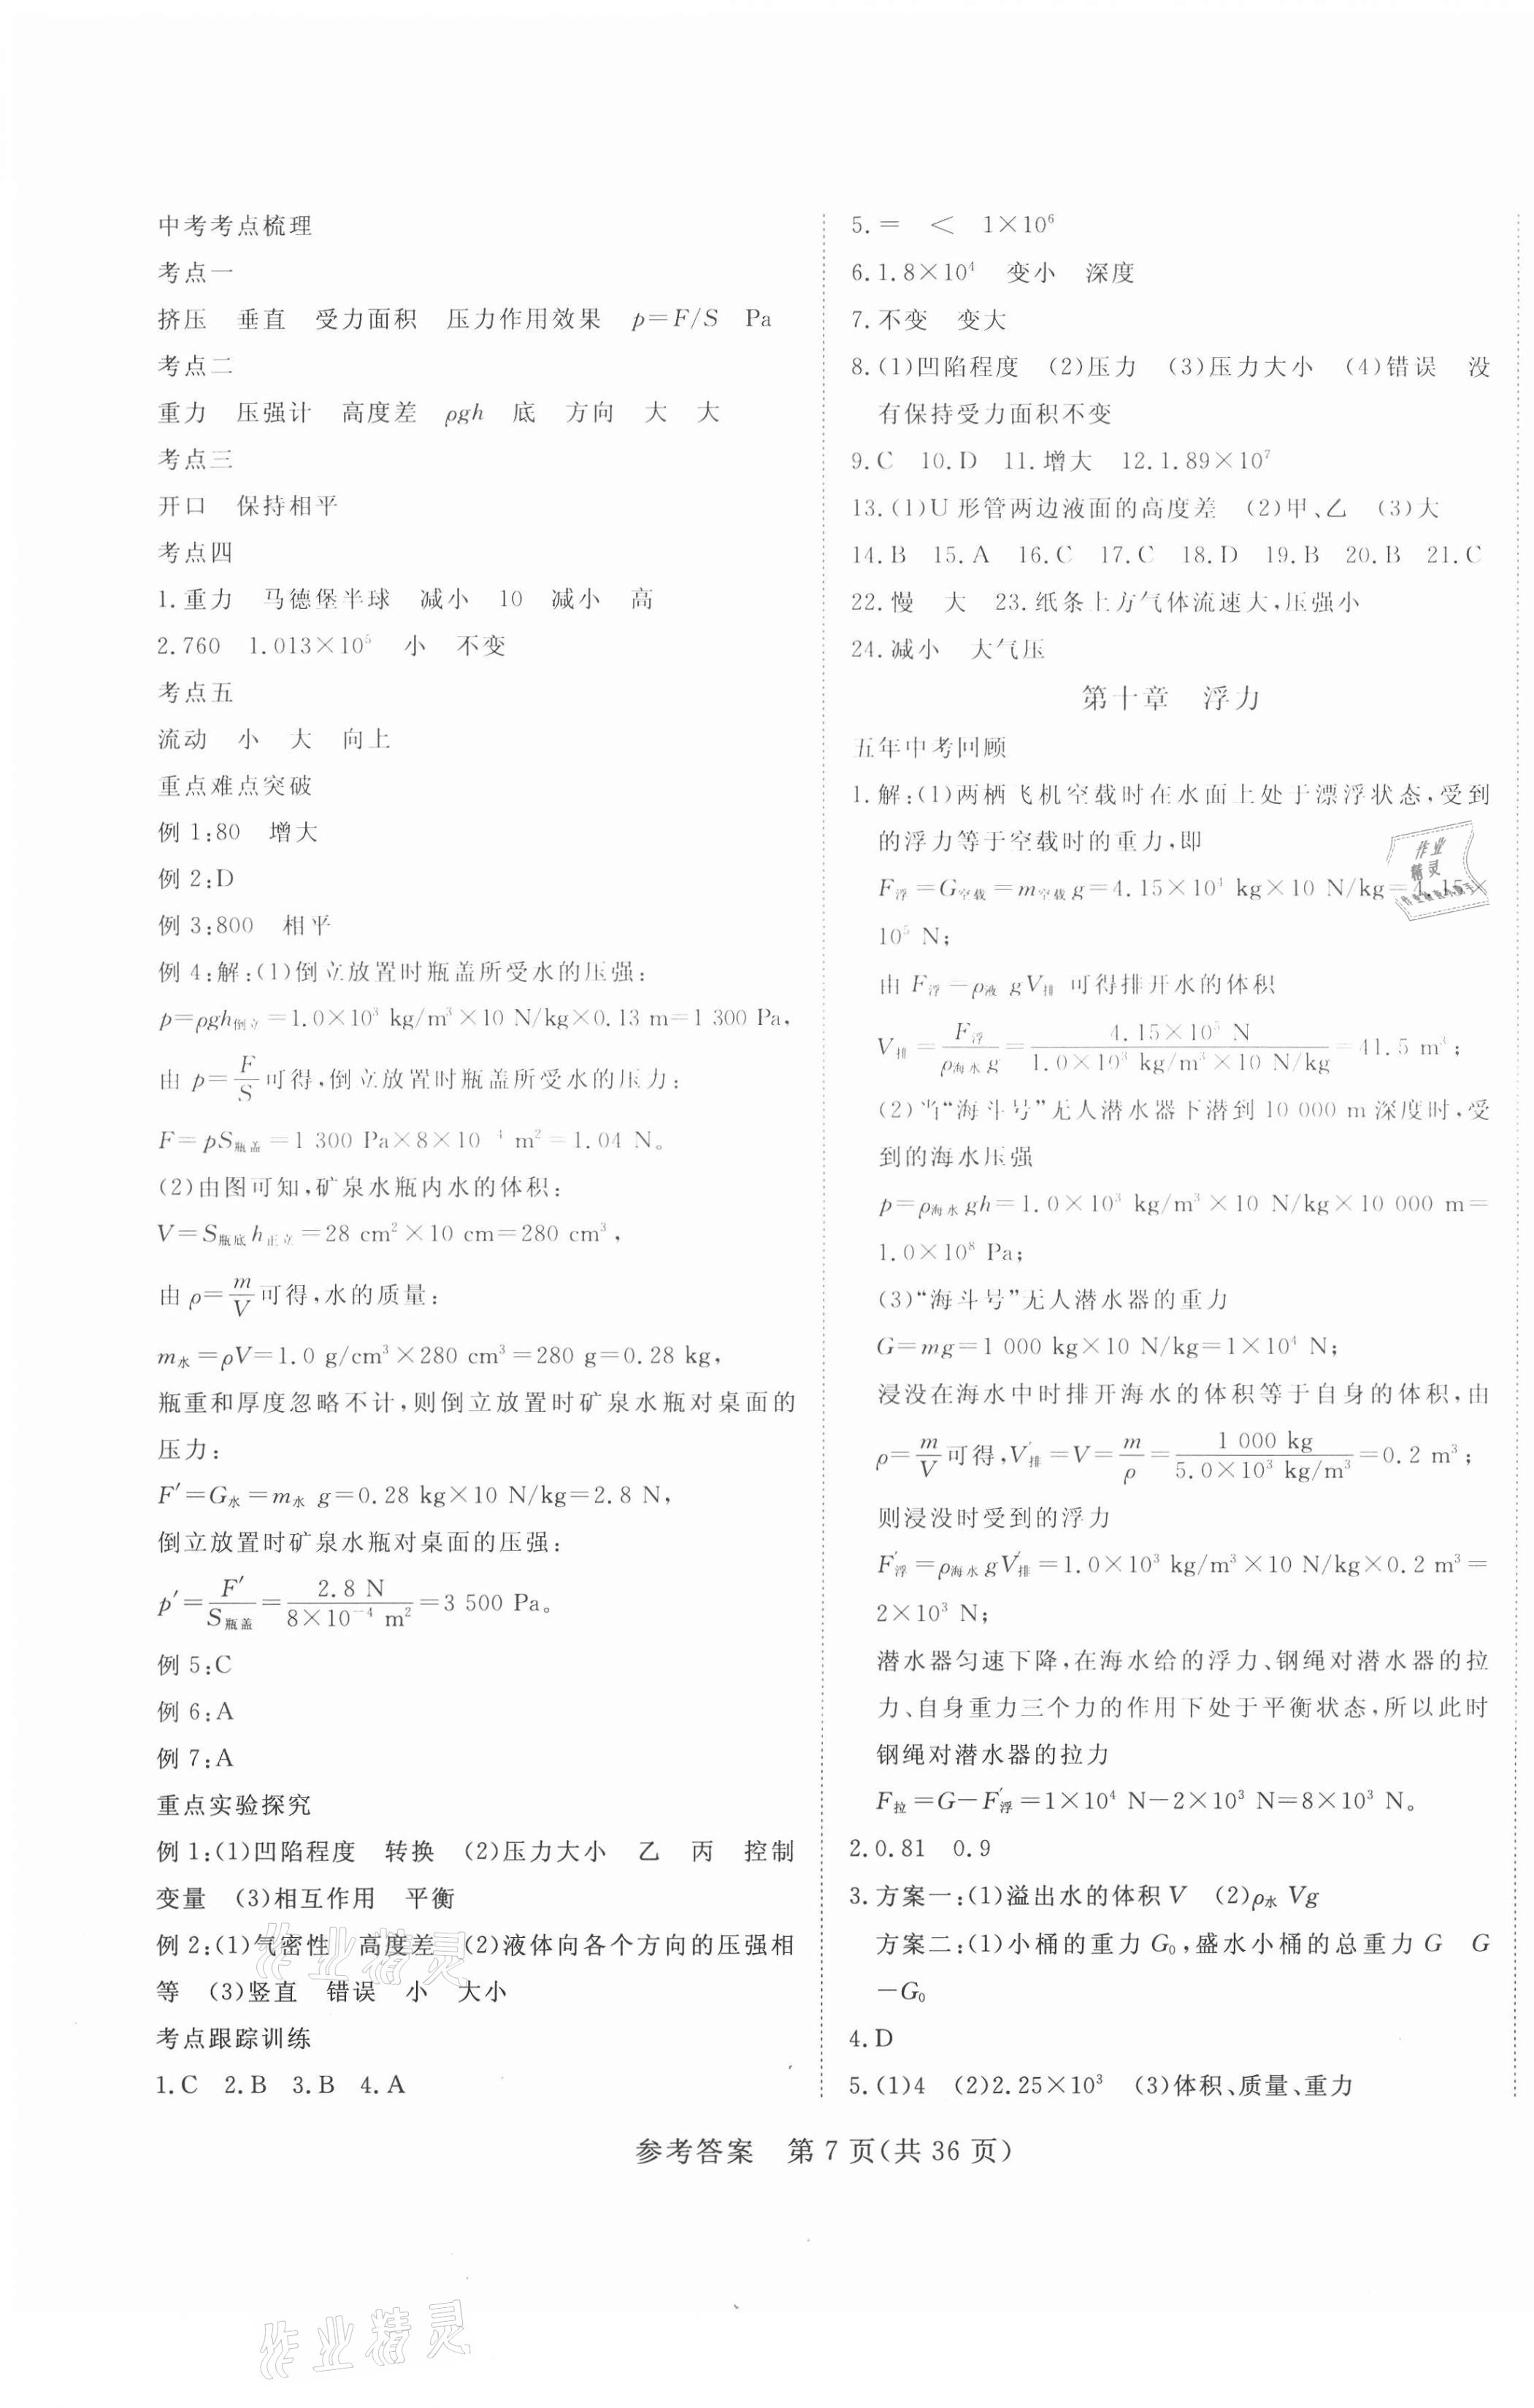 中考考点梳理
考点一
挤压 垂直 受力面积 压力作用效果 p=F/S Pa
考点二
重力 压强计 高度差 ρgh 底 方向 大 大
考点三
开口 保持相平
考点四
1.重力 马德堡半球 减小 10 减小 高
2.760 1.013×10⁵ 小 不变
考点五
流动 小 大 向上
重点难点突破
例 1:80 增大
例 2:D
例 3:800 相平
例 4:解:(1)倒立放置时瓶盖所受水的压强:
p=ρgh倒立=1.0×10³ kg/m³×10 N/kg×0.13 m=1 300 Pa,
由 p=F/S可得,倒立放置时瓶盖所受水的压力:
F=pS瓶盖=1 300 Pa×8×10⁻⁴ m²=1.04 N。
(2)由图可知,矿泉水瓶内水的体积:
V=S瓶底h正立=28 cm²×10 cm=280 cm³,
由 ρ=m/V可得,水的质量:
m水=ρV=1.0 g/cm³×280 cm³=280 g=0.28 kg,
瓶重和厚度忽略不计,则倒立放置时矿泉水瓶对桌面的
压力:
F′=G水=m水 g=0.28 kg×10 N/kg=2.8 N,
倒立放置时矿泉水瓶对桌面的压强:
p′=F′/S瓶盖=2.8 N/8×10⁻⁴ m²=3 500 Pa。
例 5:C
例 6:A
例 7:A
重点实验探究
例 1:(1)凹陷程度 转换 (2)压力大小 乙 丙 控制
变量 (3)相互作用 平衡
例 2:(1)气密性 高度差 (2)液体向各个方向的压强相
等 (3)竖直 错误 小 大小
考点跟踪训练
1.C 2.B 3.B 4.A
5.= < 1×10⁶
6.1.8×10⁴ 变小 深度
7.不变 变大
8.(1)凹陷程度 (2)压力 (3)压力大小 (4)错误 没
有保持受力面积不变
9.C 10.D 11.增大 12.1.89×10⁷
13.(1)U 形管两边液面的高度差 (2)甲、乙 (3)大
14.B 15.A 16.C 17.C 18.D 19.B 20.B 21.C
22.慢 大 23.纸条上方气体流速大,压强小
24.减小 大气压
第十章 浮力
五年中考回顾
1.解:(1)两栖飞机空载时在水面上处于漂浮状态,受到
的浮力等于空载时的重力,即
F浮=G空载=m空载g=4.15×10⁴ kg×10 N/kg=4.15×
10⁵ N;
由 F浮=ρ液 gV排 可得排开水的体积
V排=F浮/ρ海水g=4.15×10⁵ N/1.0×10³ kg/m³×10 N/kg=41.5 m³;
(2)当“海斗号”无人潜水器下潜到 10 000 m 深度时,受
到的海水压强
p=ρ海水gh=1.0×10³ kg/m³×10 N/kg×10 000 m=
1.0×10⁸ Pa;
(3)“海斗号”无人潜水器的重力
G=mg=1 000 kg×10 N/kg=1×10⁴ N;
浸没在海水中时排开海水的体积等于自身的体积,由
ρ=m/V可得,V′排=V=m/ρ=1 000 kg/5.0×10³ kg/m³=0.2 m³;
则浸没时受到的浮力
F′浮=ρ海水gV′排=1.0×10³ kg/m³×10 N/kg×0.2 m³=
2×10³ N;
潜水器匀速下降,在海水给的浮力、钢绳对潜水器的拉
力、自身重力三个力的作用下处于平衡状态,所以此时
钢绳对潜水器的拉力
F拉=G−F′浮=1×10⁴ N−2×10³ N=8×10³ N。
2.0.81 0.9
3.方案一:(1)溢出水的体积 V (2)ρ水 Vg
方案二:(1)小桶的重力 G₀,盛水小桶的总重力 G G
−G₀
4.D
5.(1)4 (2)2.25×10³ (3)体积、质量、重力
参考答案 第 7 页(共 36 页)
作业精灵
作业精灵
作业精灵